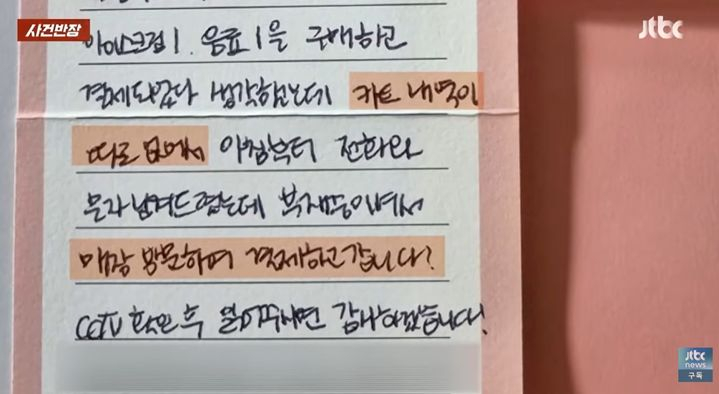 사건반장
jtbc
아이스크림 1, 음료 1을 구매하고
결제되었다 생각하였는데 카드 내역이
따로 없어서 아침부터 전화와
문자 남겨드렸는데 부재중이셔서
매장 방문하여 결제하고 갑니다!
CCTV 확인 후 열어주시면 감사하겠습니다!
jtbc
news
구독